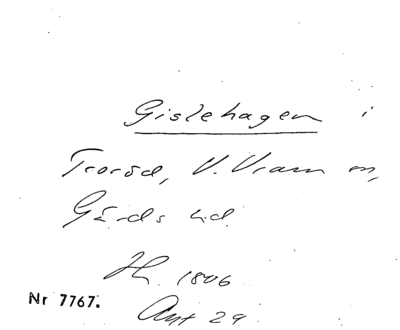 Gislehagen i
Troröd, V. Vram sn,
Gärds hd.
Hh. 1806
Nr 7767.
Akt 29